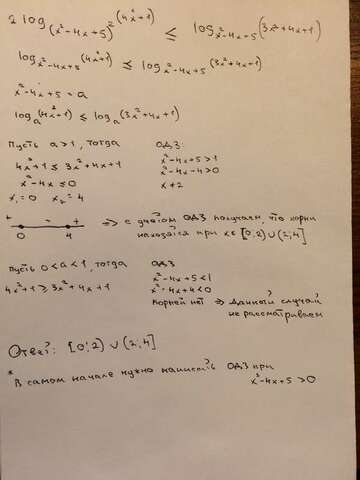 2 log_{(x²-4x+5)²}(4x²+1) ≤ log_{x²-4x+5}(3x²+4x+1)
log_{x²-4x+5}(4x²+1) ≤ log_{x²-4x+5}(3x²+4x+1)
x²-4x+5 = a
log_a(4x²+1) ≤ log_a(3x²+4x+1)
Пусть a > 1, тогда ОДЗ:
4x²+1 ≤ 3x²+4x+1 x²-4x+5 > 1
x²-4x ≤ 0 x²-4x-4 > 0
x₁ = 0 x₂ = 4 x ≠ 2
+ - +
0 4 => с учётом ОДЗ получаем, что корни
находятся при x ∈ [0;2) ∪ (2;4]
Пусть 0 < a < 1, тогда ОДЗ
4x²+1 ≥ 3x²+4x+1 x²-4x+5 < 1
x²-4x+4 < 0
Корней нет => Данный случай
не рассматриваем
Ответ: [0;2) ∪ (2;4]
* В самом начале нужно написать ОДЗ при
x²-4x+5 > 0